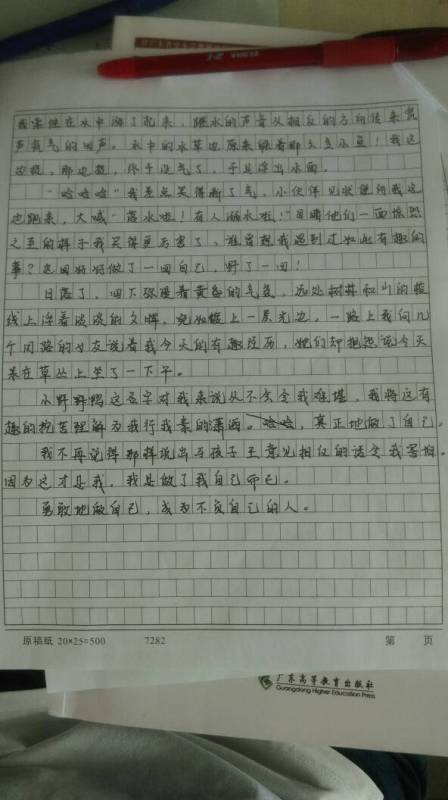 我索性在水中游了起来，踩水的声音从相反的方向传来瓮
声瓮气的回声。水中的水草也原来绕着那么多小鱼！我这
边捉，那边捉，终于没气了，于是浮出水面。
"哈哈哈"我差点笑得断了气，小伙伴见状便向我这
边跑来，大喊"落水啦！有人溺水啦！"目睹他们一面惊恐
之至的样子我笑得更厉害了，谁曾想我遇到过如此有趣的
事？这回好好做了一回自己，野了一回！
日落了，四下弥漫着黄昏的气息，远处树林和山的棱
线上浮着淡淡的夕晖，宛如镀上一层光边，一路上我向几
个同路的女友说着我今天的有趣经历，她们却抱怨说今天
呆在草丛上坐了一下午。
小野野鸭这名字对我来说从不会令我难堪，我将这有
趣的挖苦理解为我行我素的潇洒。哈哈，真正地做了自己。
我不再觉得那样说出与孩子王意见相反的话令我害怕。
因为这才是我，我是做了我自己而已。
勇敢地做自己，成为不负自己的人。
原稿纸 20×25=500 7282 第 页
广东高等教育出版社
Guangdong Higher Education Press